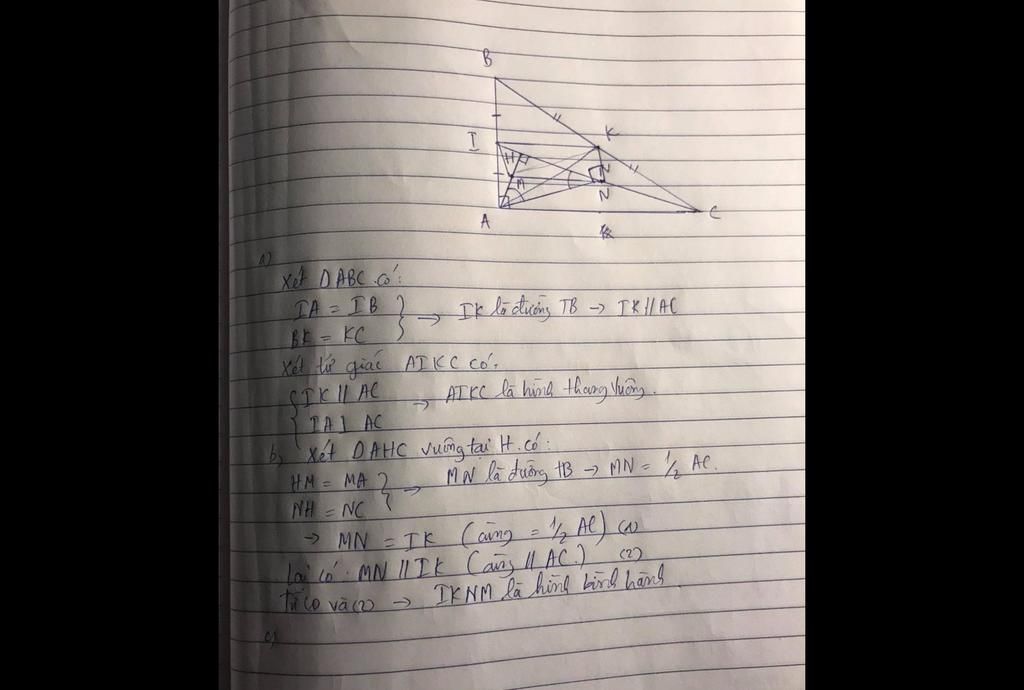 B
I
K
H
M
N
A
C
a)
Xét ΔABC có:
IA = IB } → IK là đường TB → IK // AC
BK = KC
Xét tứ giác AIKC có:
{ IK // AC → AIKC là hình thang vuông.
IA ⊥ AC
b) Xét ΔAHC vuông tại H có:
HM = MA } → MN là đường TB → MN = 1/2 AC.
NH = NC
→ MN = IK (cùng = 1/2 AC) (1)
Lại có: MN // IK (cùng // AC.) (2)
Từ (1) và (2) → IKNM là hình bình hành
c)